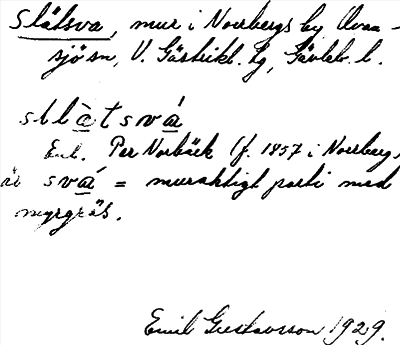 Slåtsva, mur i Norrbergs by Ovan-
sjö sn, V. Gästrikl. hg, Gävleb. l.
slåtsvá
Enl. Per Norbäck (f. 1857 i Norrberg,
är svá = muraktigt parti med
myrgräs.
Emil Gustavsson 1929.